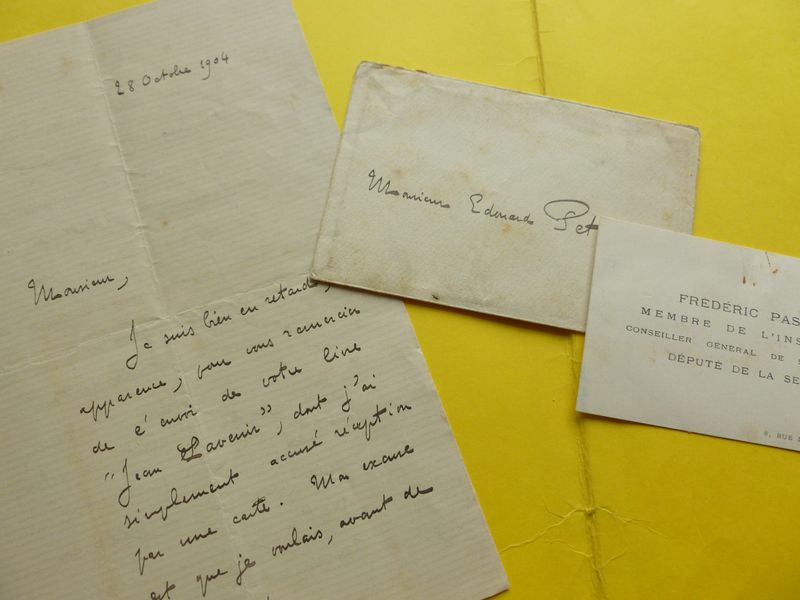 28 Octobre 1904
Monsieur,
Je suis bien en retard,
apparence, pour vous remercier
de l'envoi de votre livre
"Jean Lavenir", dont j'ai
simplement accusé réception
par une carte. Mon excuse
est que je voulais, avant de
Monsieur Edouard Pet
FRÉDÉRIC PAS
MEMBRE DE L'INS
CONSEILLER GÉNÉRAL DE S
DÉPUTÉ DE LA SE
8, RUE